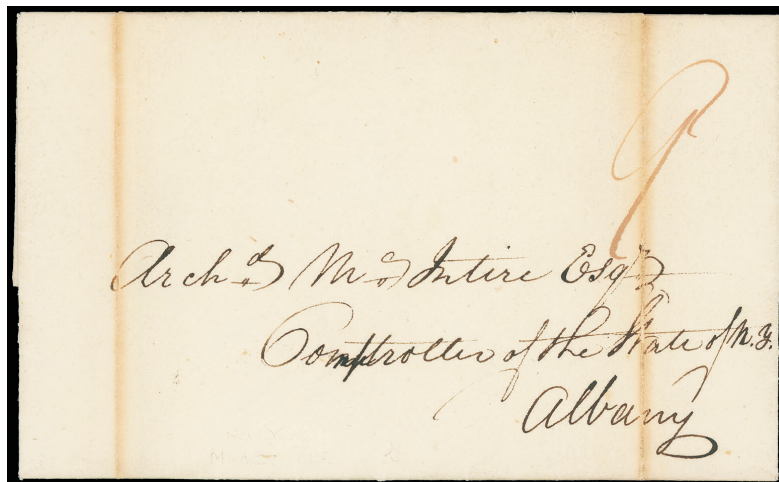 9
Arch.d Mc.Intire Esqr
Comptroller of the State of N.Y.
Albany